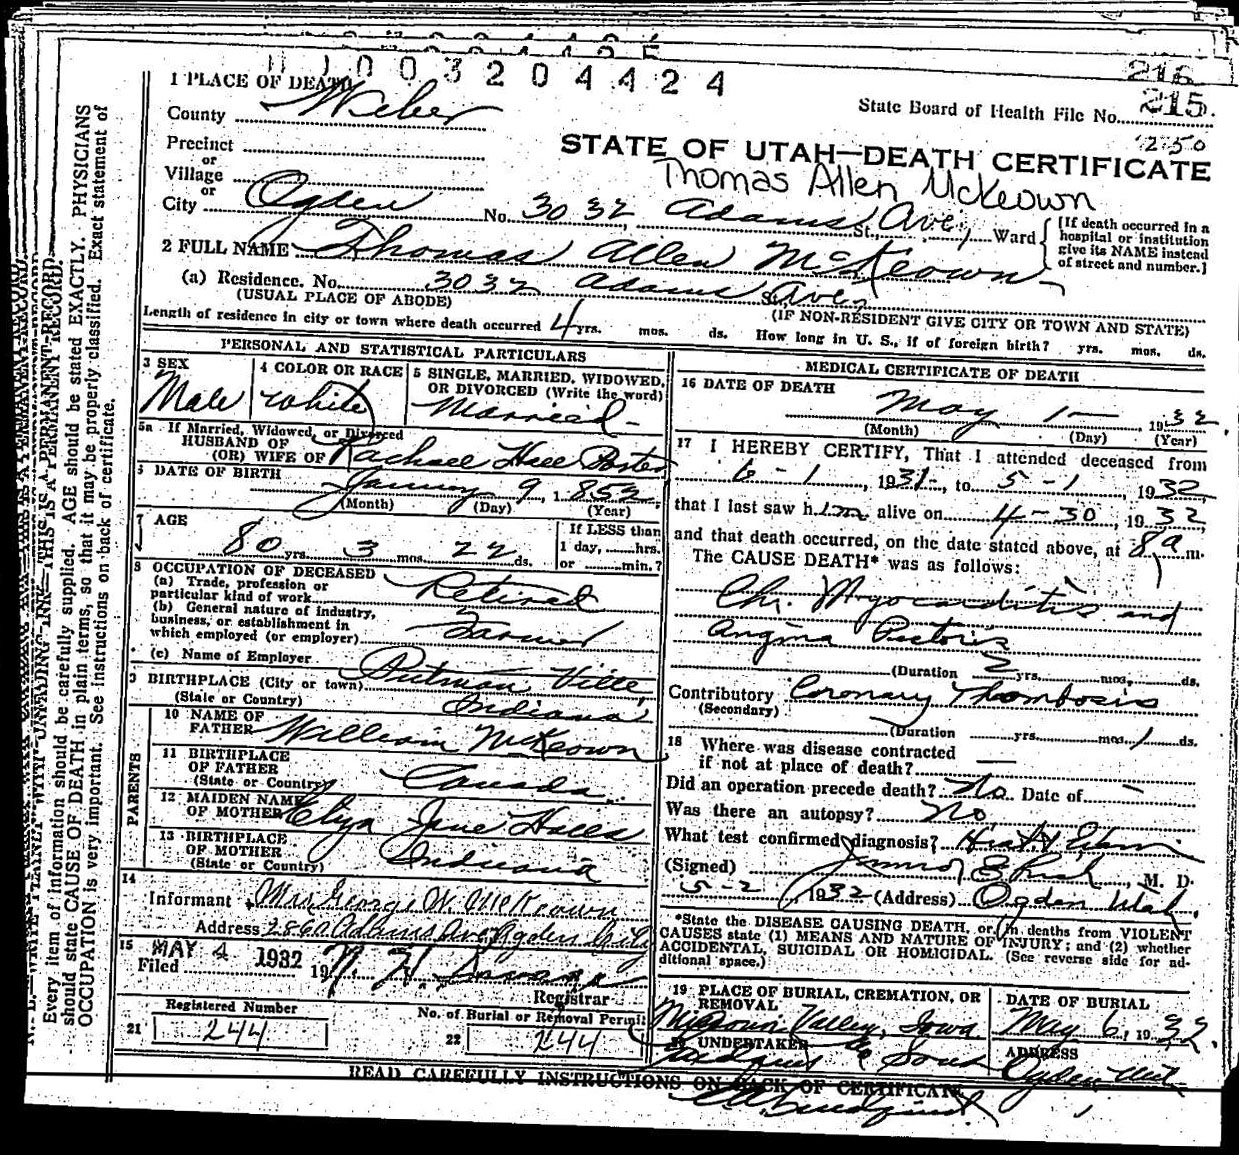 1003204424
216
1 PLACE OF DEATH
215
County Weber
State Board of Health File No.
250
Precinct
or
STATE OF UTAH—DEATH CERTIFICATE
Village
or
Thomas Allen McKeown
City Ogden No. 3032 Adams St. Ave, Ward
[If death occurred in a
hospital or institution
give its NAME instead
of street and number.]
2 FULL NAME Thomas Allen McKeown
(a) Residence. No. 3032 Adams St. Ave,
(USUAL PLACE OF ABODE)
(IF NON-RESIDENT GIVE CITY OR TOWN AND STATE)
Length of residence in city or town where death occurred 4 yrs. mos. ds. How long in U. S., if of foreign birth? yrs. mos. ds.
PERSONAL AND STATISTICAL PARTICULARS
3 SEX
Male
4 COLOR OR RACE
White
5 SINGLE, MARRIED, WIDOWED,
OR DIVORCED (Write the word)
Married
5a If Married, Widowed, or Divorced
HUSBAND OF
(OR) WIFE OF Rachael Hall Porter
6 DATE OF BIRTH
January 9, 1852
(Month) (Day) (Year)
7 AGE
80 yrs. 3 mos. 22 ds.
If LESS than
1 day, hrs.
or min.?
8 OCCUPATION OF DECEASED
(a) Trade, profession or
particular kind of work Retired
(b) General nature of industry,
business, or establishment in
which employed (or employer) Farmer
(c) Name of Employer
9 BIRTHPLACE (City or town) Putman Ville,
(State or Country) Indiana
PARENTS
10 NAME OF
FATHER William McKeown
11 BIRTHPLACE
OF FATHER
(State or Country) Canada
12 MAIDEN NAME
OF MOTHER Eliza Jane Halls
13 BIRTHPLACE
OF MOTHER
(State or Country) Indiana
14
Informant Mrs. George W. McKeown
Address 2860 Adams Ave Ogden City
15 MAY 4 1932
Filed 19
Registrar
Registered Number
21 244
No. of Burial or Removal Permit
22 244
MEDICAL CERTIFICATE OF DEATH
16 DATE OF DEATH
May 1— 1932
(Month) (Day) (Year)
17 I HEREBY CERTIFY, That I attended deceased from
6-1, 1931, to 5-1, 1932
that I last saw him alive on 4-30, 1932
and that death occurred, on the date stated above, at 8 a m.
The CAUSE DEATH* was as follows:
Chr. Myocarditis and
Angina Pectoris
(Duration 2 yrs. mos. ds.
Contributory Coronary Thombosis
(Secondary)
(Duration yrs. mos. 1 ds.
18 Where was disease contracted
if not at place of death? —
Did an operation precede death? No Date of —
Was there an autopsy? No
What test confirmed diagnosis?
(Signed) M. D.
5-2, 1932 (Address) Ogden Utah.
*State the DISEASE CAUSING DEATH, or, in deaths from VIOLENT
CAUSES state (1) MEANS AND NATURE OF INJURY; and (2) whether
ACCIDENTAL, SUICIDAL OR HOMICIDAL. (See reverse side for ad-
ditional space.)
19 PLACE OF BURIAL, CREMATION, OR
REMOVAL
Missouri Valley, Iowa
DATE OF BURIAL
May 6, 1932.
20 UNDERTAKER
& Sons
ADDRESS
Ogden Utah
READ CAREFULLY INSTRUCTIONS ON BACK OF CERTIFICATE
N. B.—WRITE PLAINLY WITH UNFADING INK—THIS IS A PERMANENT RECORD.
Every item of information should be carefully supplied. AGE should be stated EXACTLY. PHYSICIANS
should state CAUSE OF DEATH in plain terms, so that it may be properly classified. Exact statement of
OCCUPATION is very important. See instructions on back of certificate.